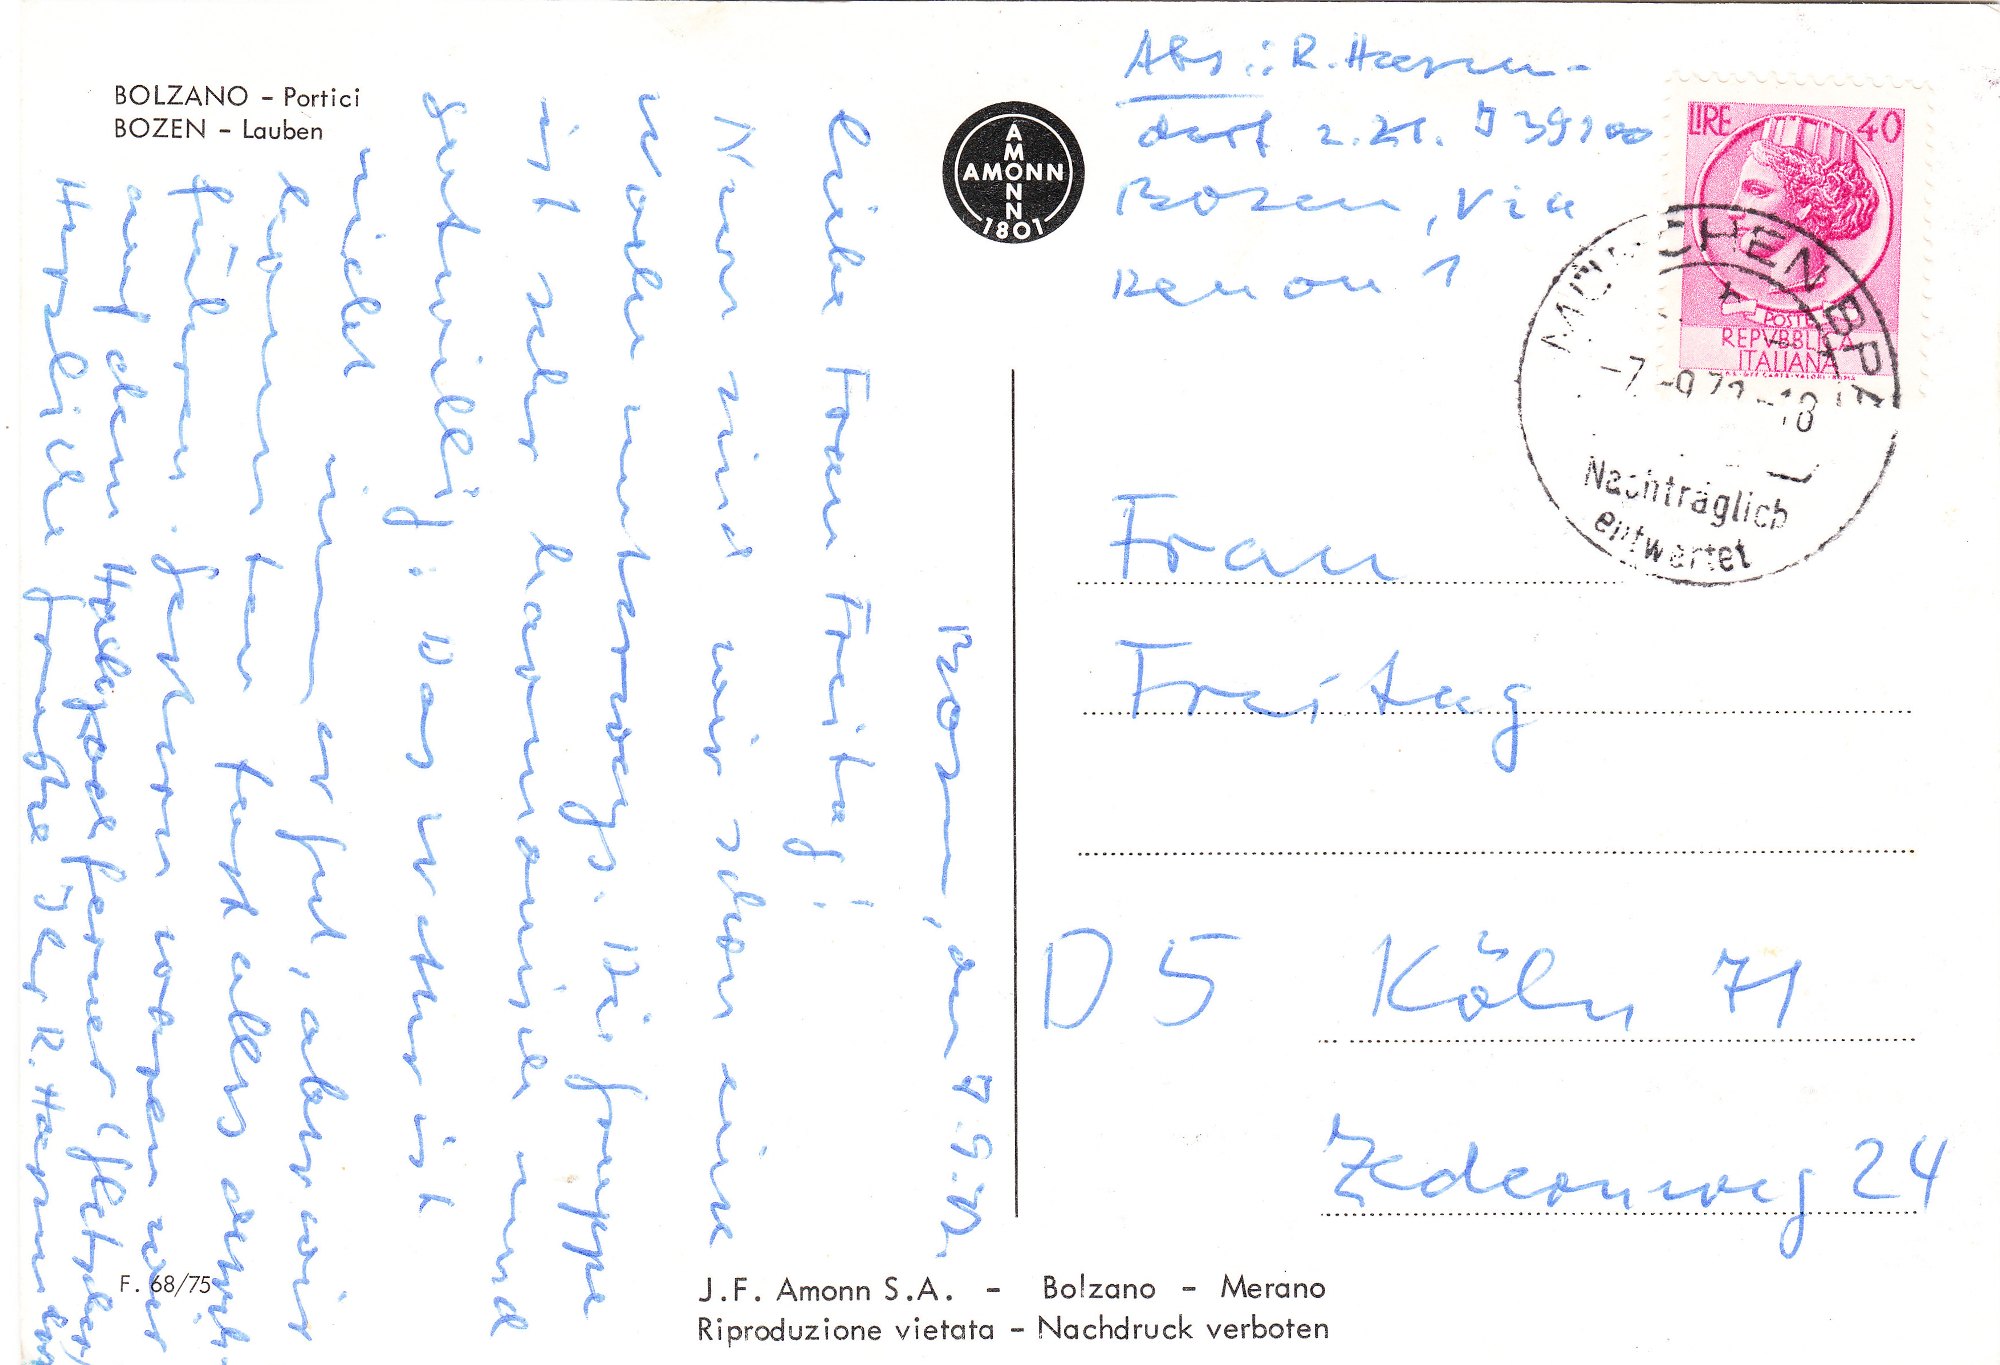 BOLZANO – Portici
BOZEN – Lauben
Bozen, den 7.9.72
Liebe Frau Freitag!
Nun sind wir schon eine
Woche unterwegs. Die Gruppe
ist sehr harmonisch und
gutwillig. Das Wetter ist
nicht immer gut, aber wir
konnten fast alles durch-
führen. Gestern waren wir
auf dem Hochjochferner (Gletscher)
Herzliche Grüße Ihr R. Hasen
AMONN
AMONN
1801
Abs.: R. Hasen-
dorf z.Zt. I 39100
Bozen, Via
Renon 1
LIRE 40
POSTE
REPVBBLICA
ITALIANA
MÜNCHEN BPA
-7.-9.72-18
Nachträglich
entwertet
Frau
Freitag
D 5 Köln 71
Zedernweg 24
F. 68/75
J.F. Amonn S.A. – Bolzano – Merano
Riproduzione vietata – Nachdruck verboten